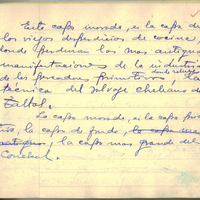 Esta capa morada, es la capa de
los viejos desperdicios de cocina,
donde perduran las mas antiguas
manifestaciones de la industria
de los pescadores primitivos
técnica del salvaje chelense de
Taltal.
La capa morada, es la capa
la capa de fondo, la capa mas
antigua, la capa mas grande del
Conchal.